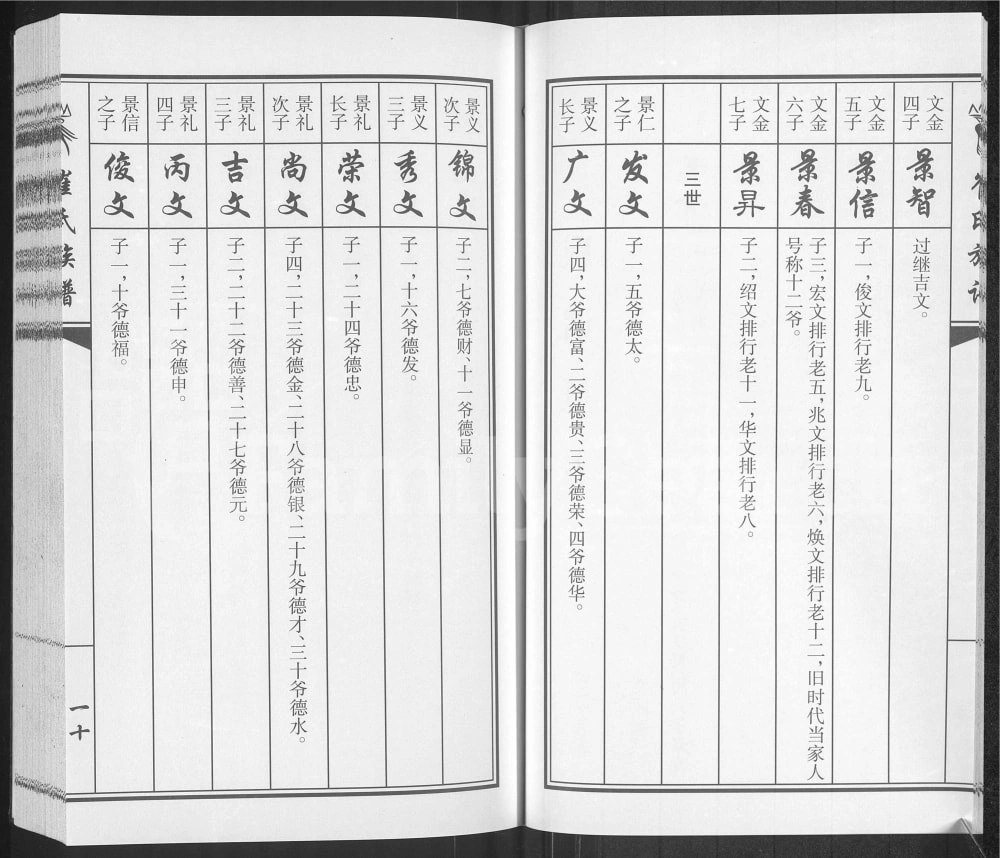 文金
四子
景智
过继吉文。
文金
五子
景信
子一，俊文排行老九。
文金
六子
景春
子三，宏文排行老五，兆文排行老六，焕文排行老十二，旧时代当家人
号称十二爷。
文金
七子
景昇
子二，绍文排行老十一，华文排行老八。
三世
景仁
之子
发文
子一，五爷德太。
景义
长子
广文
子四，大爷德富、二爷德贵、三爷德荣、四爷德华。
景义
次子
锦文
子二，七爷德财、十一爷德显。
景义
三子
秀文
子一，十六爷德发。
景礼
长子
荣文
子一，二十四爷德忠。
景礼
次子
尚文
子四，二十三爷德金、二十八爷德银、二十九爷德才、三十爷德水。
景礼
三子
吉文
子二，二十二爷德善、二十七爷德元。
景礼
四子
丙文
子一，三十一爷德申。
景信
之子
俊文
子一，十爷德福。
崔氏族谱
一十